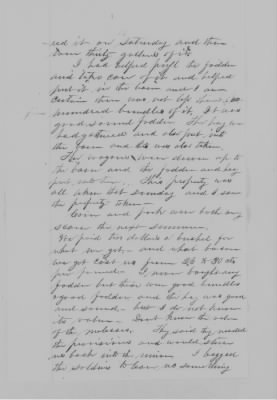 red it on Saturday and there
were thirty gallons of it.
I had helped pull the fodder
and take care of it and helped
put it in the barn and I am
certain there was not less than
hundred bundles of it. It was
good sound fodder. The hay we
had gathered and also put into
the barn and it was also taken.
The wagons were driven up to
the barn and the fodder and hay
put into them. This property was
all taken that Sunday and I saw
the property taken.
Corn and pork were both very
scarce the next summer.
We paid two dollars a bushel for
what we got, and what bacon
we got cost us from 25 to 30 cts
per pound. I never bought any
fodder but this was good bundles
good fodder and the hay was good
and sound but I do not know
its value. Don't know the value
of the molasses. They said they needed
the provisions and would
us back into the union. I begged
the soldiers to leave us something